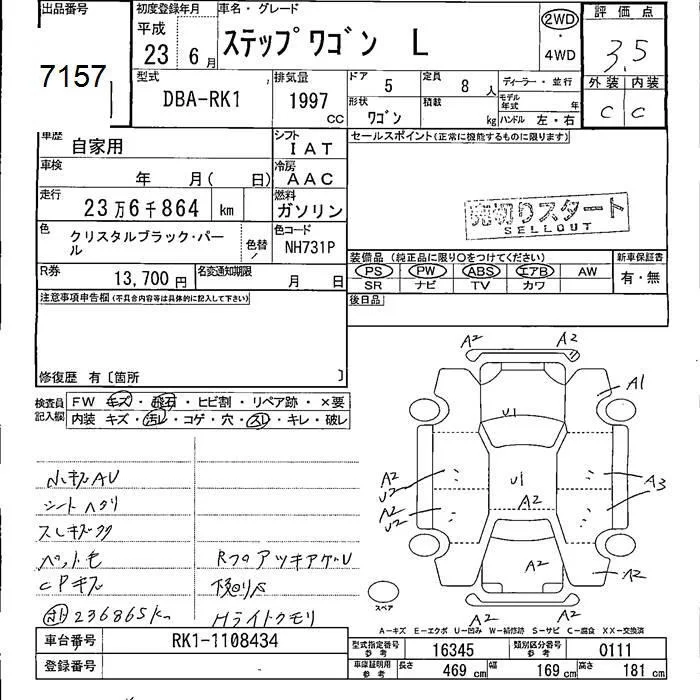 出品番号
7157
初度登録年月
平成
23 6月
車名・グレード
ステップワゴン L
2WD
・
4WD
評価点
3.5
外装 内装
C C
型式
DBA-RK1
排気量
1997
CC
ドア 5
定員 8人
ディーラー・並行
形状 ワゴン
積載 kg
モデル年式 年
ハンドル 左・右
車歴 自家用
シフト IAT
車検 年 月( 日)
冷房 AAC
走行
23万6千864 km
燃料
ガソリン
色 クリスタルブラック・パール
色替/
色コード
NH731P
R券 13,700円
名変通知期限 月 日
セールスポイント(正常に機能するものに限ります)
売切りスタート
SELLOUT
装備品 (純正品に限り○をつけてください)
新車保証書
PS PW ABS エアB AW
有・無
SR ナビ TV カワ
後日品
注意事項申告欄(不具合内容等は具体的に記入して下さい)
修復歴 有〔箇所 〕
検査員
記入欄
FW キズ・飛石・ヒビ割・リペア跡・×要
内装 キズ・汚レ・コゲ・穴・スレ・キレ・破レ
小キズAU
シートヘタリ
スレキズ
ペット毛
CPキズ
236865km
Rフロアツキアゲ U
Hライトクモリ
A2 A2
A1
U1
A2
U2
A2
U2
U1
A2
A3
A2
A2
A2 A2
スペア
A-キズ E-エクボ U-凹み W-補修跡 S-サビ C-腐食 XX-交換済
車台番号 RK1-1108434
登録番号
型式指定番号
参考
16345
類別区分番号
参考
0111
車庫証明用
参考
長さ 469cm
幅 169cm
高さ 181cm